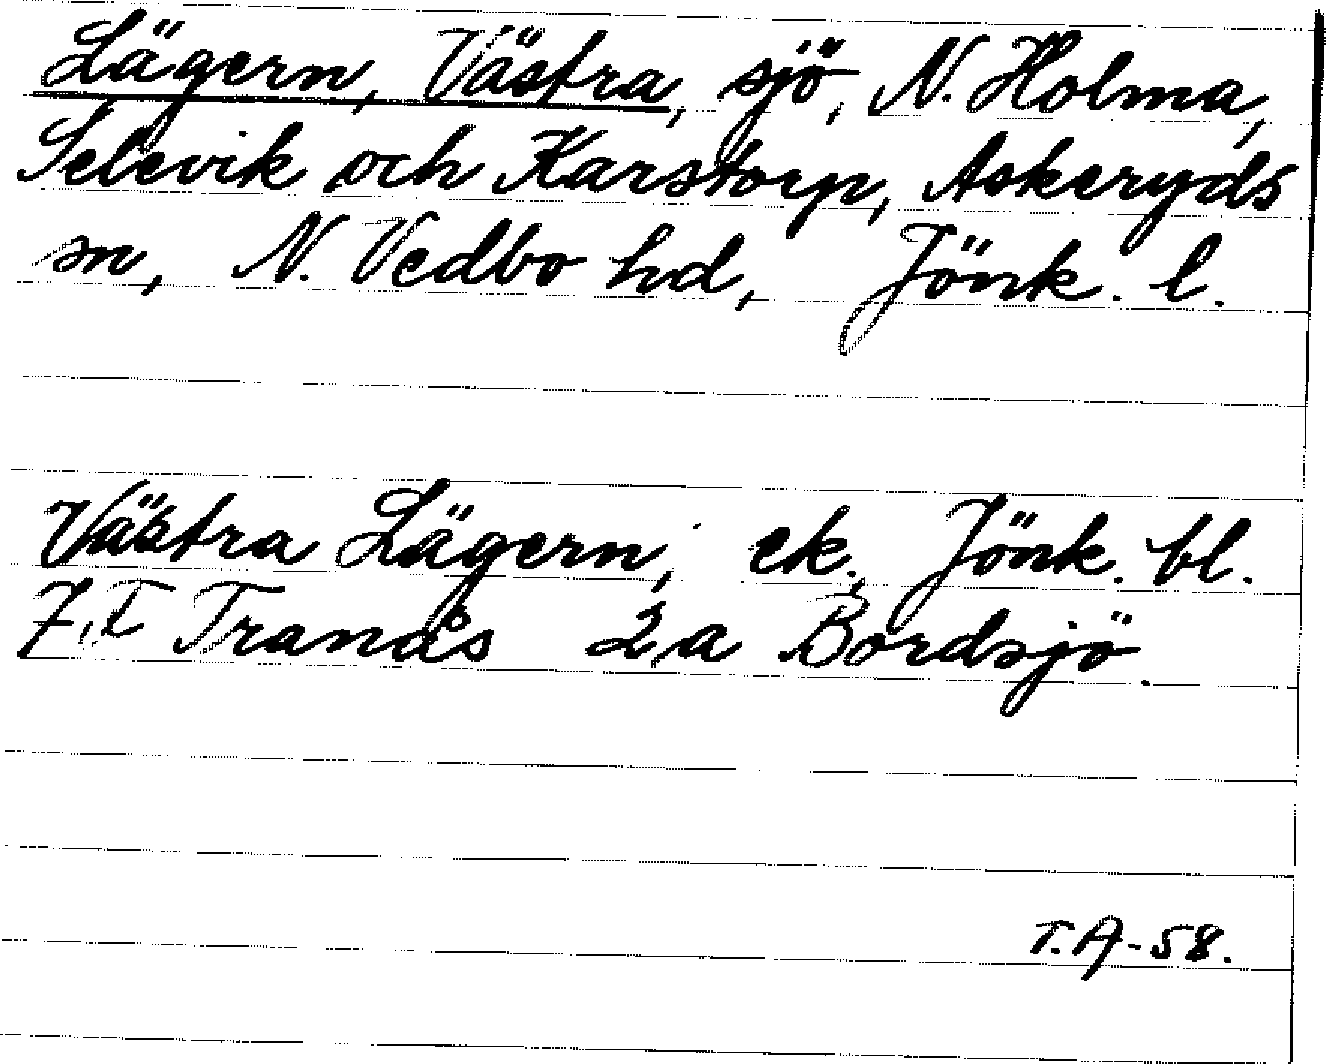 Lägern, Västra, sjö, N. Holma,
Selevik och Karstorp, Askeryds
sn, N. Vedbo hd, Jönk. l.
Västra Lägern, ek. Jönk. bl.
Tranås 2a Bordsjö.
T.A-58.